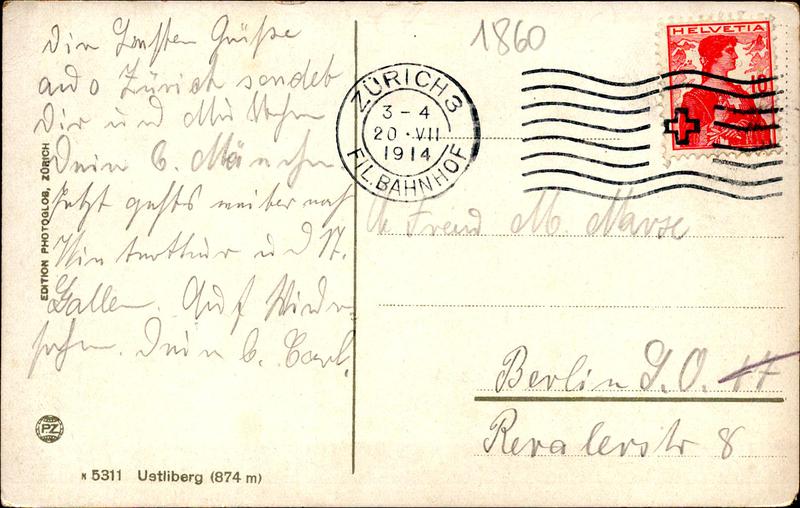 Die besten Grüße
aus Zürich sendet
Dir und
Dein b.
Jetzt gehts weiter nach
Winterthur und St.
Gallen. Auf Wieder-
sehn. Dein b. Carl.
EDITION PHOTOGLOB, ZÜRICH
PZ
N 5311 Uetliberg (874 m)
1860
ZÜRICH 3
3-4
20.VII
1914
FIL. BAHNHOF
HELVETIA
10
M.
Berlin S.O. 17
Revalerstr 8